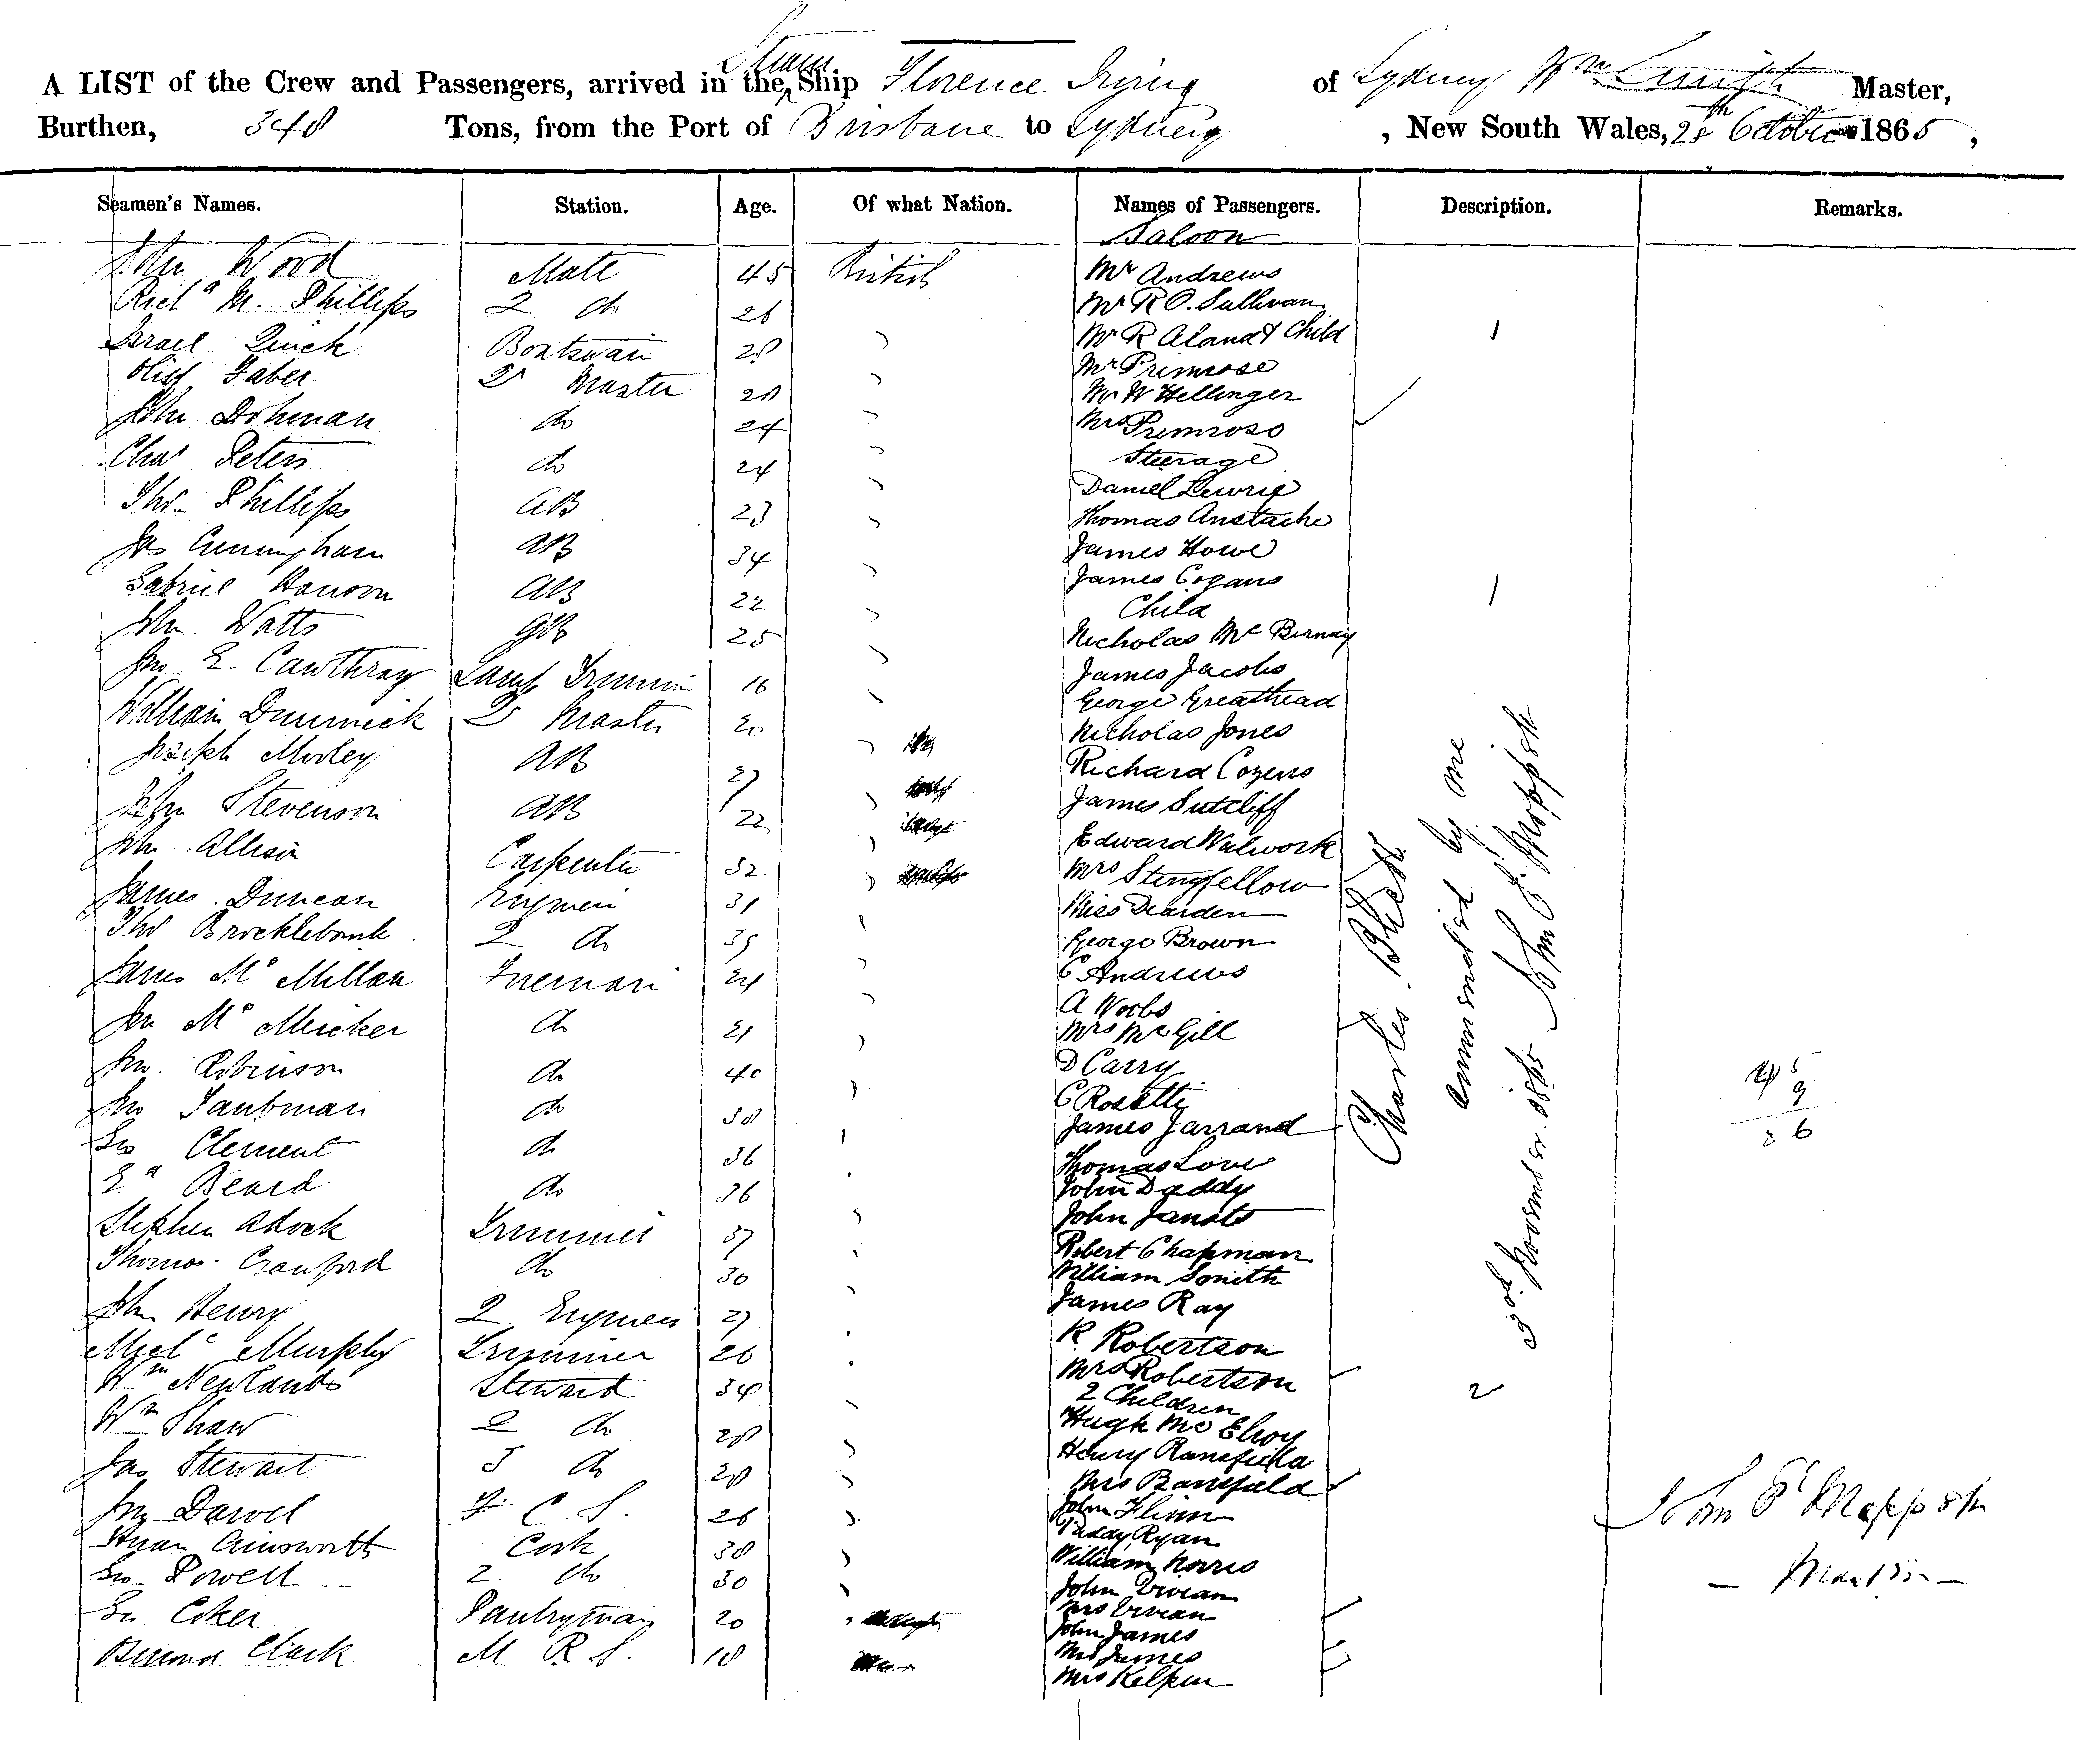 A LIST of the Crew and Passengers, arrived in the Steam Ship Florence Irving of Sydney Wm Master,
Burthen, 348 Tons, from the Port of Brisbane to Sydney, New South Wales, 28th October 1865,
Seamen's Names. Station. Age. Of what Nation. Names of Passengers. Description. Remarks.
Saloon
John Wood Mate 45 British Mr Andrews
Richd M. Phillips 2 do 26 Mr R O. Sullivan
Israel Quick Boatswain 28 Mr R Aland & Child 1
Faber 2r Master 28 Mr Primrose
Mr W Hellinger
John Dohman do 24 Mrs Primrose
Steerage
Chas Peters do 24 Daniel Lewrie
Thos Phillips AB 23 Thomas Anstache
Jas Cunningham AB 34 James Howe
Gabriel Hanson AB 22 James Cogans
Child 1
John Watts OB 25 Nicholas Mc Birnay
Jno E. Cawthray Lamp Trimmer 16 James Jacobs
George Greathead
William Dunnick 2r Master 20 Nicholas Jones
Joseph Morley AB 27 Richard Cozens
John Stevenson AB 22 James Sutcliff
John Allison Carpenter 32 Edward Walwork
Mrs Stringfellow
James Duncan Engineer 31 Miss Dearden
Thos Brocklebank 2 do 35 George Brown
James Mc Millan Fireman 24 C Andrews
A Woobs
Jno Mc Meicker do 21 Mrs McGill
Jno. Robinson do 40 D Carry
C Rosetti
Jno Taubman do 38 James Jarrand
Geo Clement do 36 Thomas Love
Ed Beard do 36 John Daddy
Stephen Adock Trimmer 37 John Janats
Thomas Cranford do 30 Robert Chapman
William Smith
John Henry 2 Engineer 27 James Ray
Michl Murphy Trimmer 26 R. Robertson
Wm Newlands Steward 34 Mrs Robertson
2 Children 2
Wm Shaw 2 do 28 Hugh Mc Elroy
Jas Stewart 3 do 28 Henry Banefield
Mrs Banefield
Jno Darvel F C S. 26 John Flinn
Paddy Ryan
Ainsworth Cook 38 William Norris
Geo Powell 2 do 30 John Vivian
Mrs Vivian
Geo Coker Pantryman 20 John James
Mrs James
Clark M R S. 18 Mrs Kelpin
Charles Bhett
by me
3rd November 1865 John
5
9
8 6
John